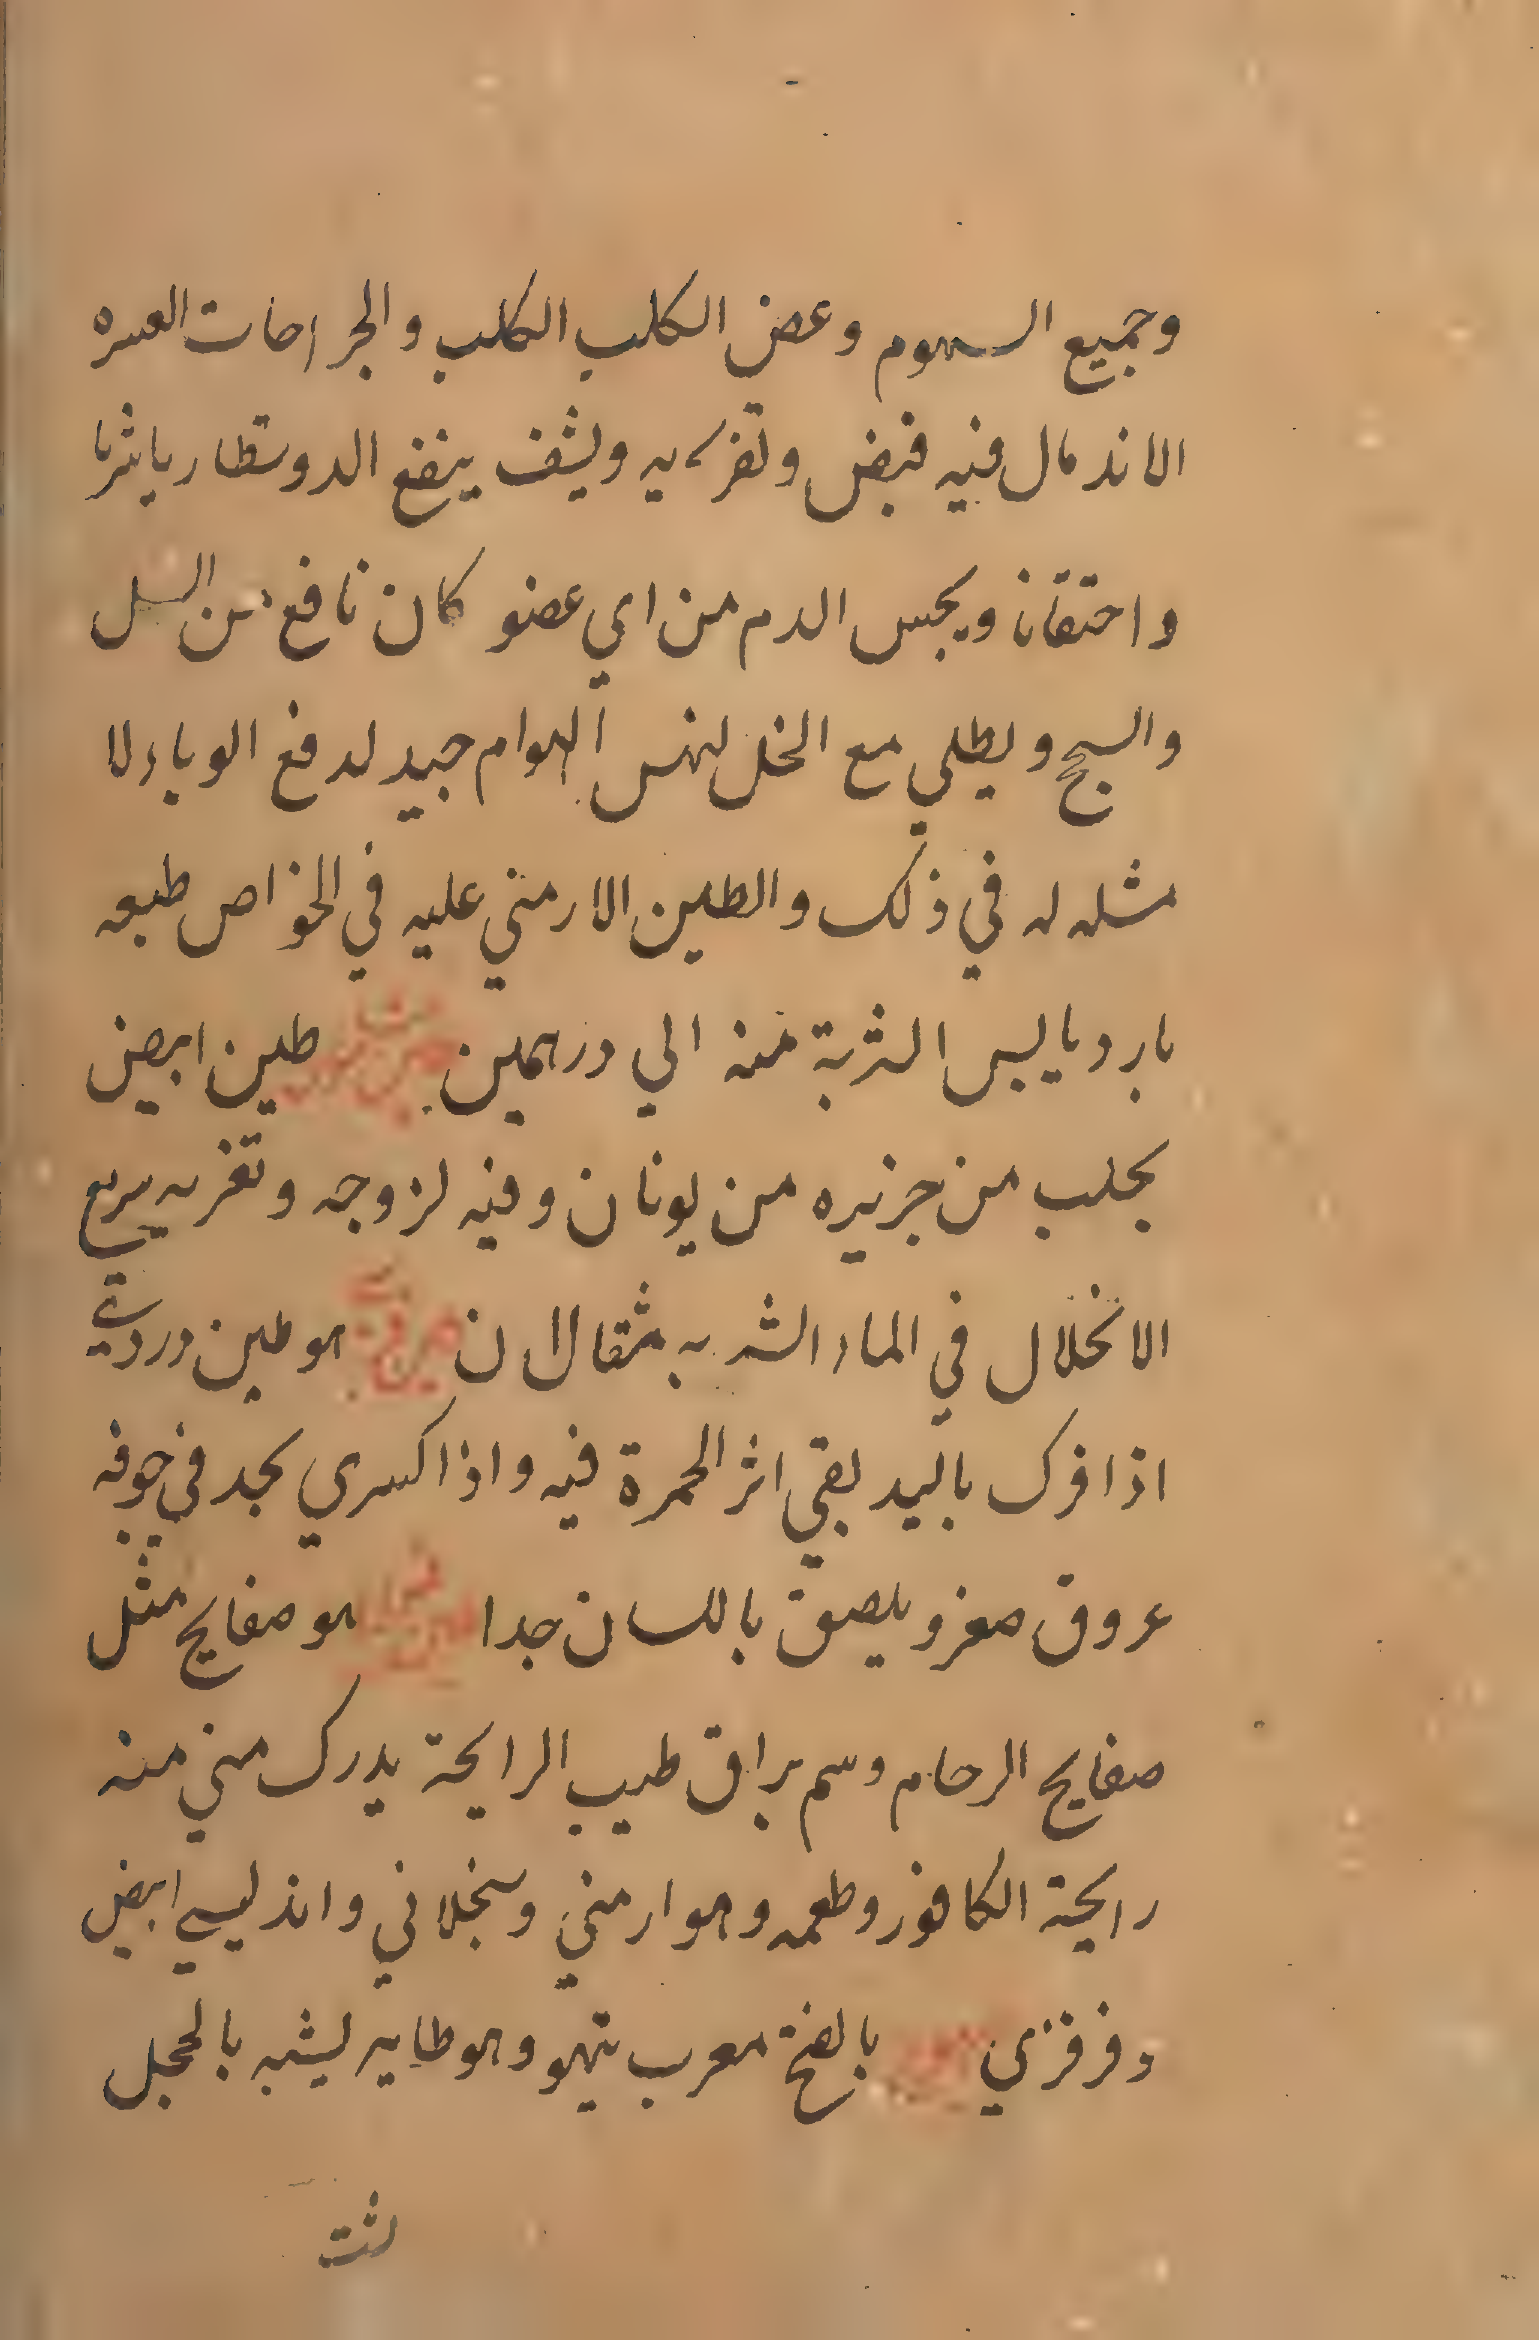 وجميع السموم وعض الكلب الكلب والجراحات العسره
الاندمال فيه قبض وتغريه وينشف ينفع الدوسنطاريا شربا
واحتقانا ويحبس الدم من اي عضو كان نافع من السل
والسحج ويطلي مع الخل لنهس الهوام جيد لدفع الوباء لا
مثله له في ذلك والطين الارمني عليه في الخواص طبعه
بارد يابس الشربة منه الي درهمين طين ابيض
يجلب من جزيره من يونان وفيه لزوجه وتغريه سريع
الانحلال في الماء الشربه مثقالان هو طين وردي
اذا فرك باليد بقي اثر الحمرة فيه واذا كسر يجد في جوفه
عروق صغر ويلصق باللسان جدا هو صفايح مثل
صفايح الرخام وسم براق طيب الرايحة يدرك مني منه
رايحة الكافور وطعمه وهو ارمني وسنجلاني واندلسي ابيض
وفرفزي بالفتح معرب تيهو وهو طاير يشبه بالحجل